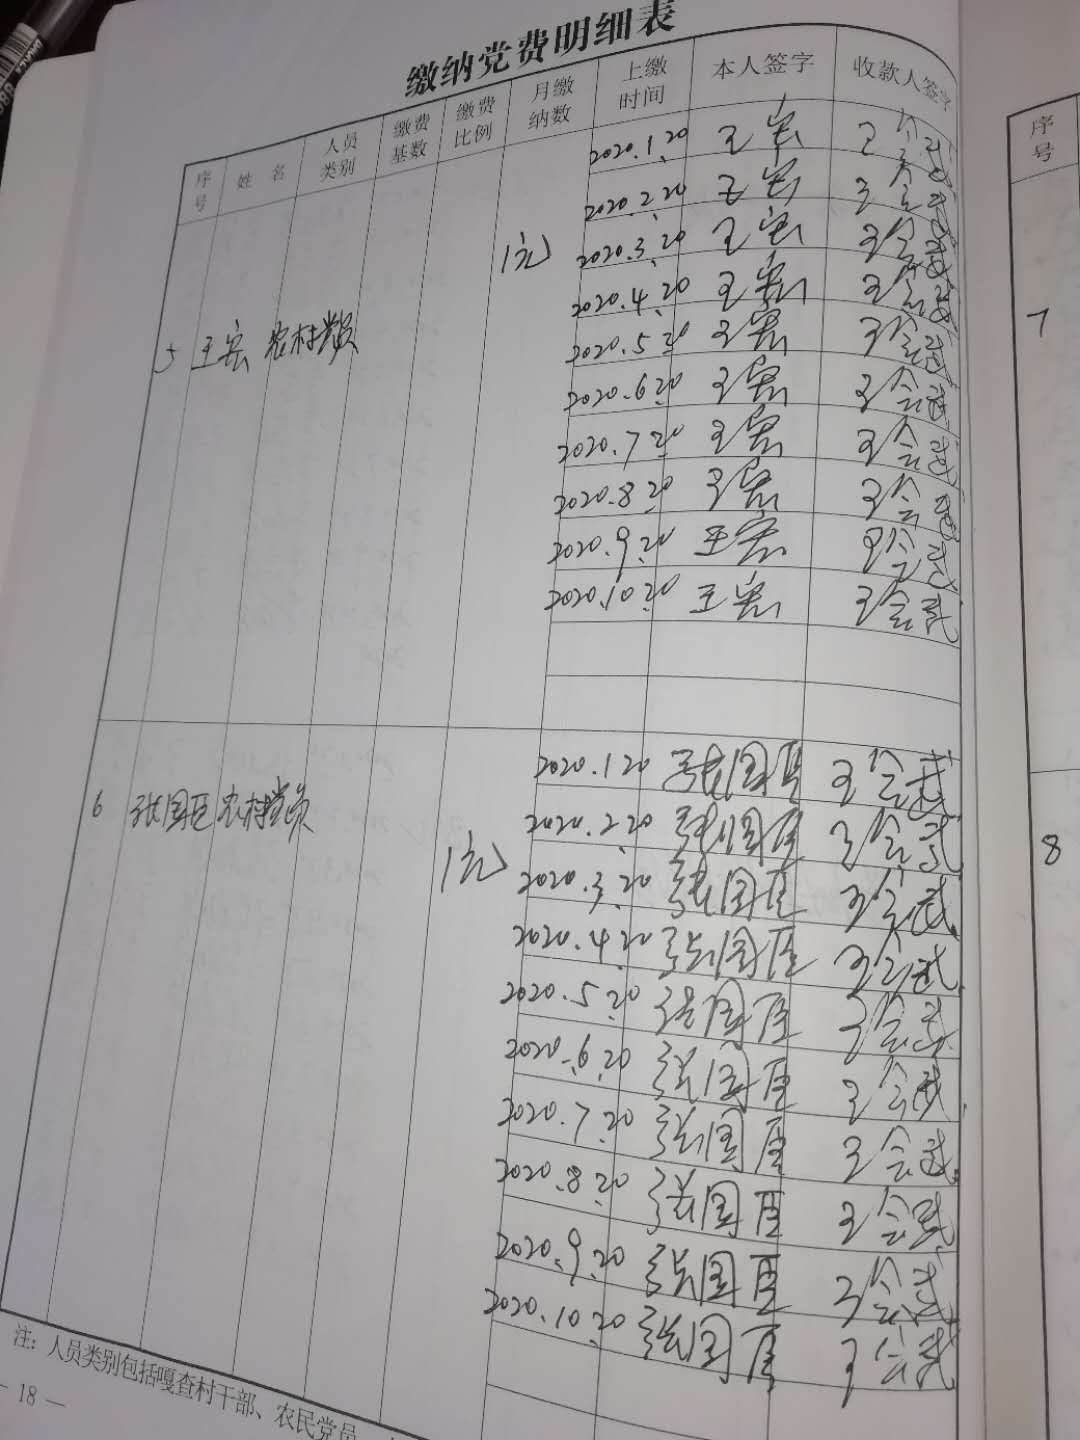 缴纳党费明细表
序号 姓 名 人员类别 缴费基数 缴费比例 月缴纳数 上缴时间 本人签字 收款人签字
5 王宏 农村党员 1元
2020.1.20 王宏 王会武
2020.2.20 王宏 王会武
2020.3.20 王宏 王会武
2020.4.20 王宏 王会武
2020.5.20 王宏 王会武
2020.6.20 王宏 王会武
2020.7.20 王宏 王会武
2020.8.20 王宏 王会武
2020.9.20 王宏 王会武
2020.10.20 王宏 王会武
6 张国臣 农村党员 1元
2020.1.20 张国臣 王会武
2020.2.20 张国臣 王会武
2020.3.20 张国臣 王会武
2020.4.20 张国臣 王会武
2020.5.20 张国臣 王会武
2020.6.20 张国臣 王会武
2020.7.20 张国臣 王会武
2020.8.20 张国臣 王会武
2020.9.20 张国臣 王会武
2020.10.20 张国臣 王会武
注：人员类别包括嘎查村干部、农民党员
— 18 —
序号
7
8